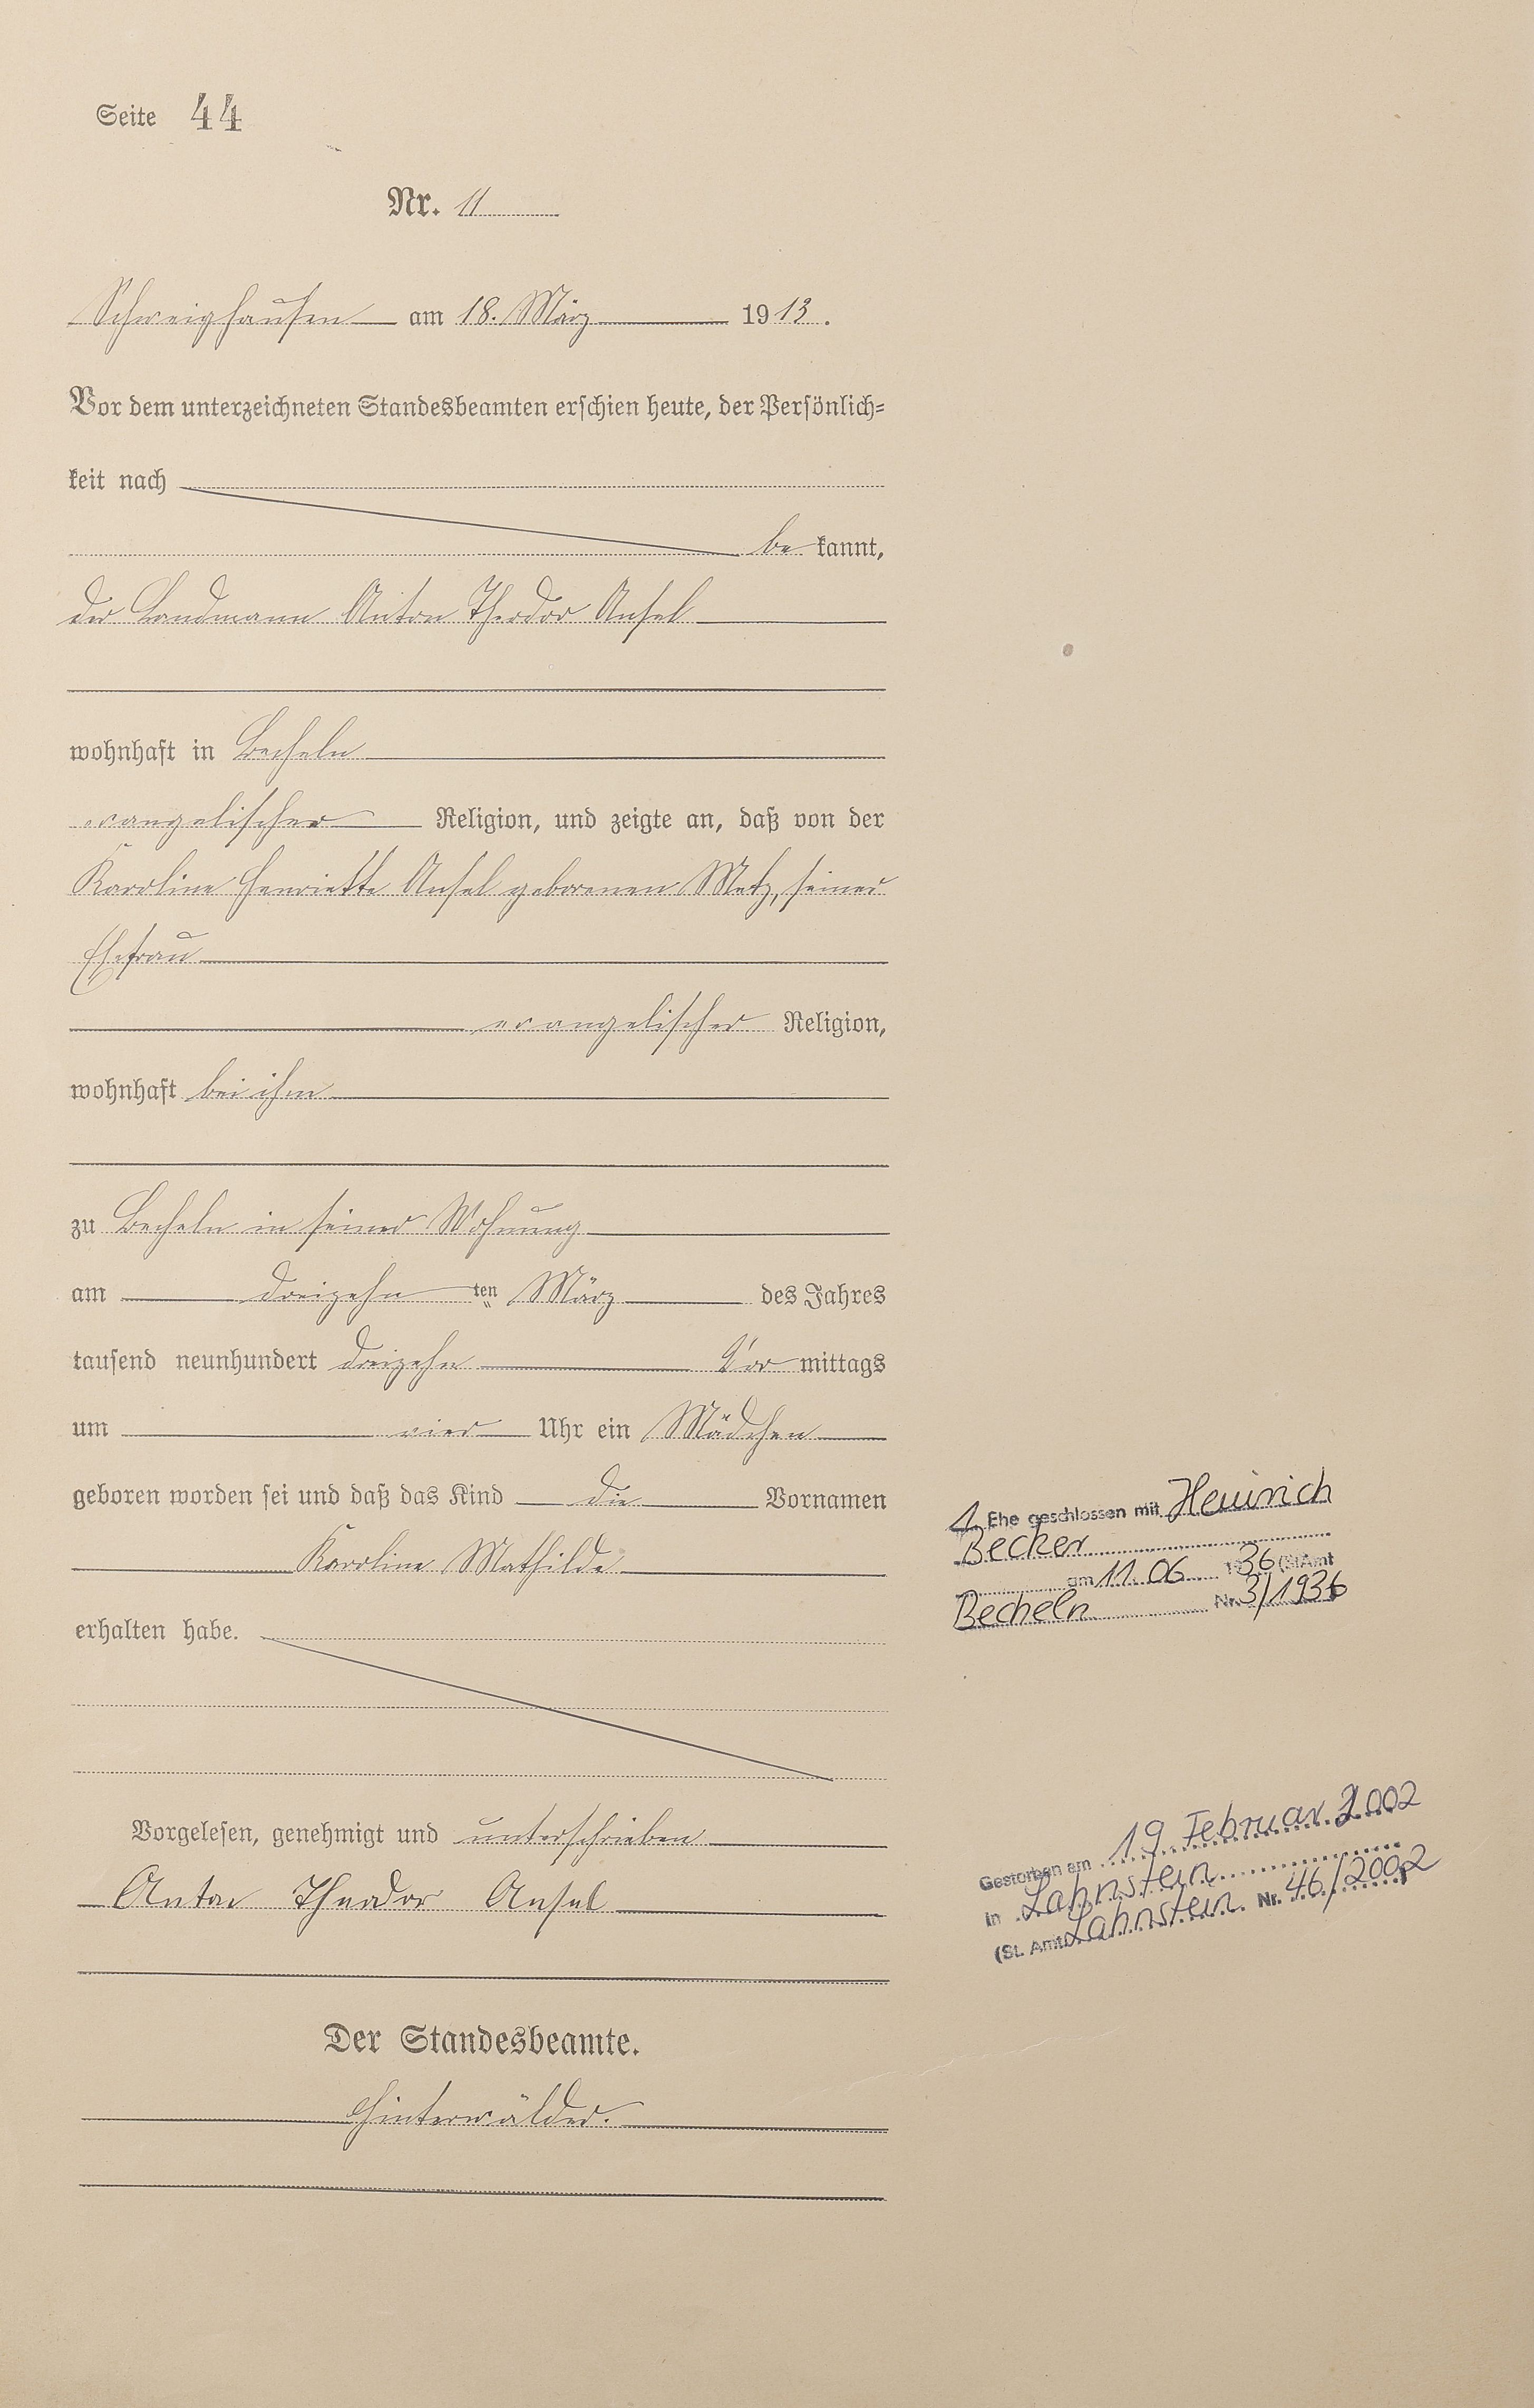 Seite 44
Nr. 11
Schweighausen am 18. März 1913.
Vor dem unterzeichneten Standesbeamten erschien heute, der Persönlich-
keit nach
bekannt,
der Landmann Anton Theodor Ansel
wohnhaft in Becheln
evangelischer Religion, und zeigte an, daß von der
Karoline Henriette Ansel geborenen Metz, seiner
Ehefrau
evangelischer Religion,
wohnhaft bei ihm
zu Becheln in seiner Wohnung
am dreizehn ten März des Jahres
tausend neunhundert dreizehn Vormittags
um vier Uhr ein Mädchen
geboren worden sei und daß das Kind die Vornamen
Karoline Mathilde
erhalten habe.
Vorgelesen, genehmigt und unterschrieben
Anton Theodor Ansel
Der Standesbeamte.
Hinterwälder.
1. Ehe geschlossen mit Heinrich
Becker
am 11.06. 1936 (StAmt
Becheln Nr. 3/1936
Gestorben am 19. Februar 2002
in Lahnstein
(St. Amt Lahnstein Nr. 46/2002